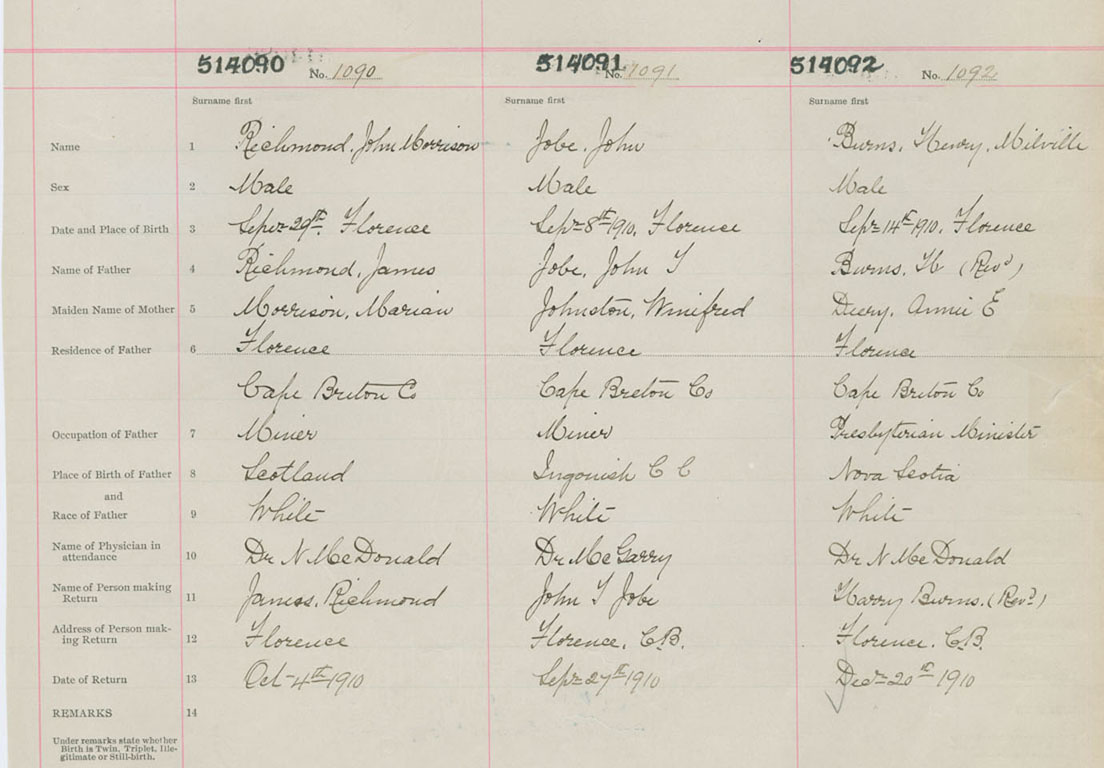 514090 No. 1090 514091 No. 1091 514092 No. 1092
Surname first Surname first Surname first
Name 1 Richmond, John Morrison Jobe, John Burns, Henry, Milville
Sex 2 Male Male Male
Date and Place of Birth 3 Sepr 29th, Florence Sepr 8th 1910, Florence Sepr 14th 1910, Florence
Name of Father 4 Richmond, James Jobe, John T Burns, H (Revd)
Maiden Name of Mother 5 Morrison, Marian Johnston, Winifred Deery, Annie E
Residence of Father 6 Florence Florence Florence
Cape Breton Co Cape Breton Co Cape Breton Co
Occupation of Father 7 Miner Miner Presbyterian Minister
Place of Birth of Father 8 Scotland Ingonish C C Nova Scotia
and
Race of Father 9 White White White
Name of Physician in
attendance 10 Dr N McDonald Dr McGarry Dr N McDonald
Name of Person making
Return 11 James, Richmond John T Jobe Harry Burns, (Revd)
Address of Person mak-
ing Return 12 Florence Florence, C.B. Florence, C.B.
Date of Return 13 Oct 4th 1910 Sepr 27th 1910 Decr 20th 1910
REMARKS 14
Under remarks state whether
Birth is Twin, Triplet, Ille-
gitimate or Still-birth.